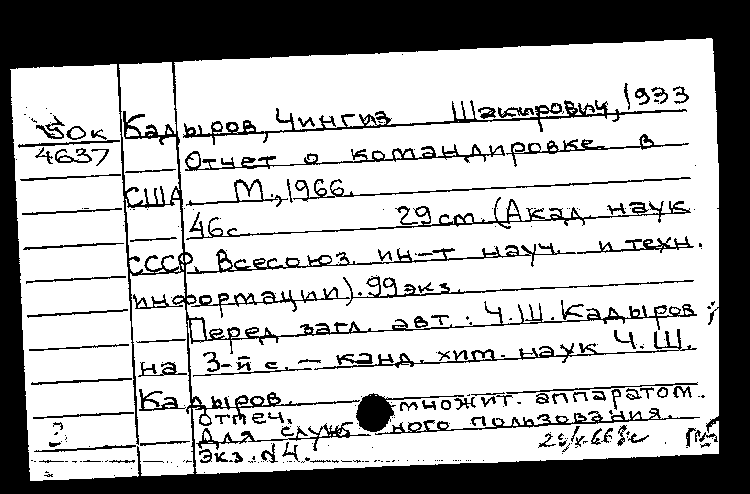 Кадыров, Чингиз Шакирович, 1933
50к
4637
Отчет о командировке в
США. М., 1966.
46с 29 см. (Акад. наук
СССР. Всесоюз. ин-т науч. и техн.
информации). 99 экз.
Перед загл. авт.: Ч.Ш. Кадыров;
на 3-й с. — канд. хим. наук Ч.Ш.
Кадыров.
Отпеч. множит. аппаратом.
Для служ ного пользования.
Экз. N 4.
3